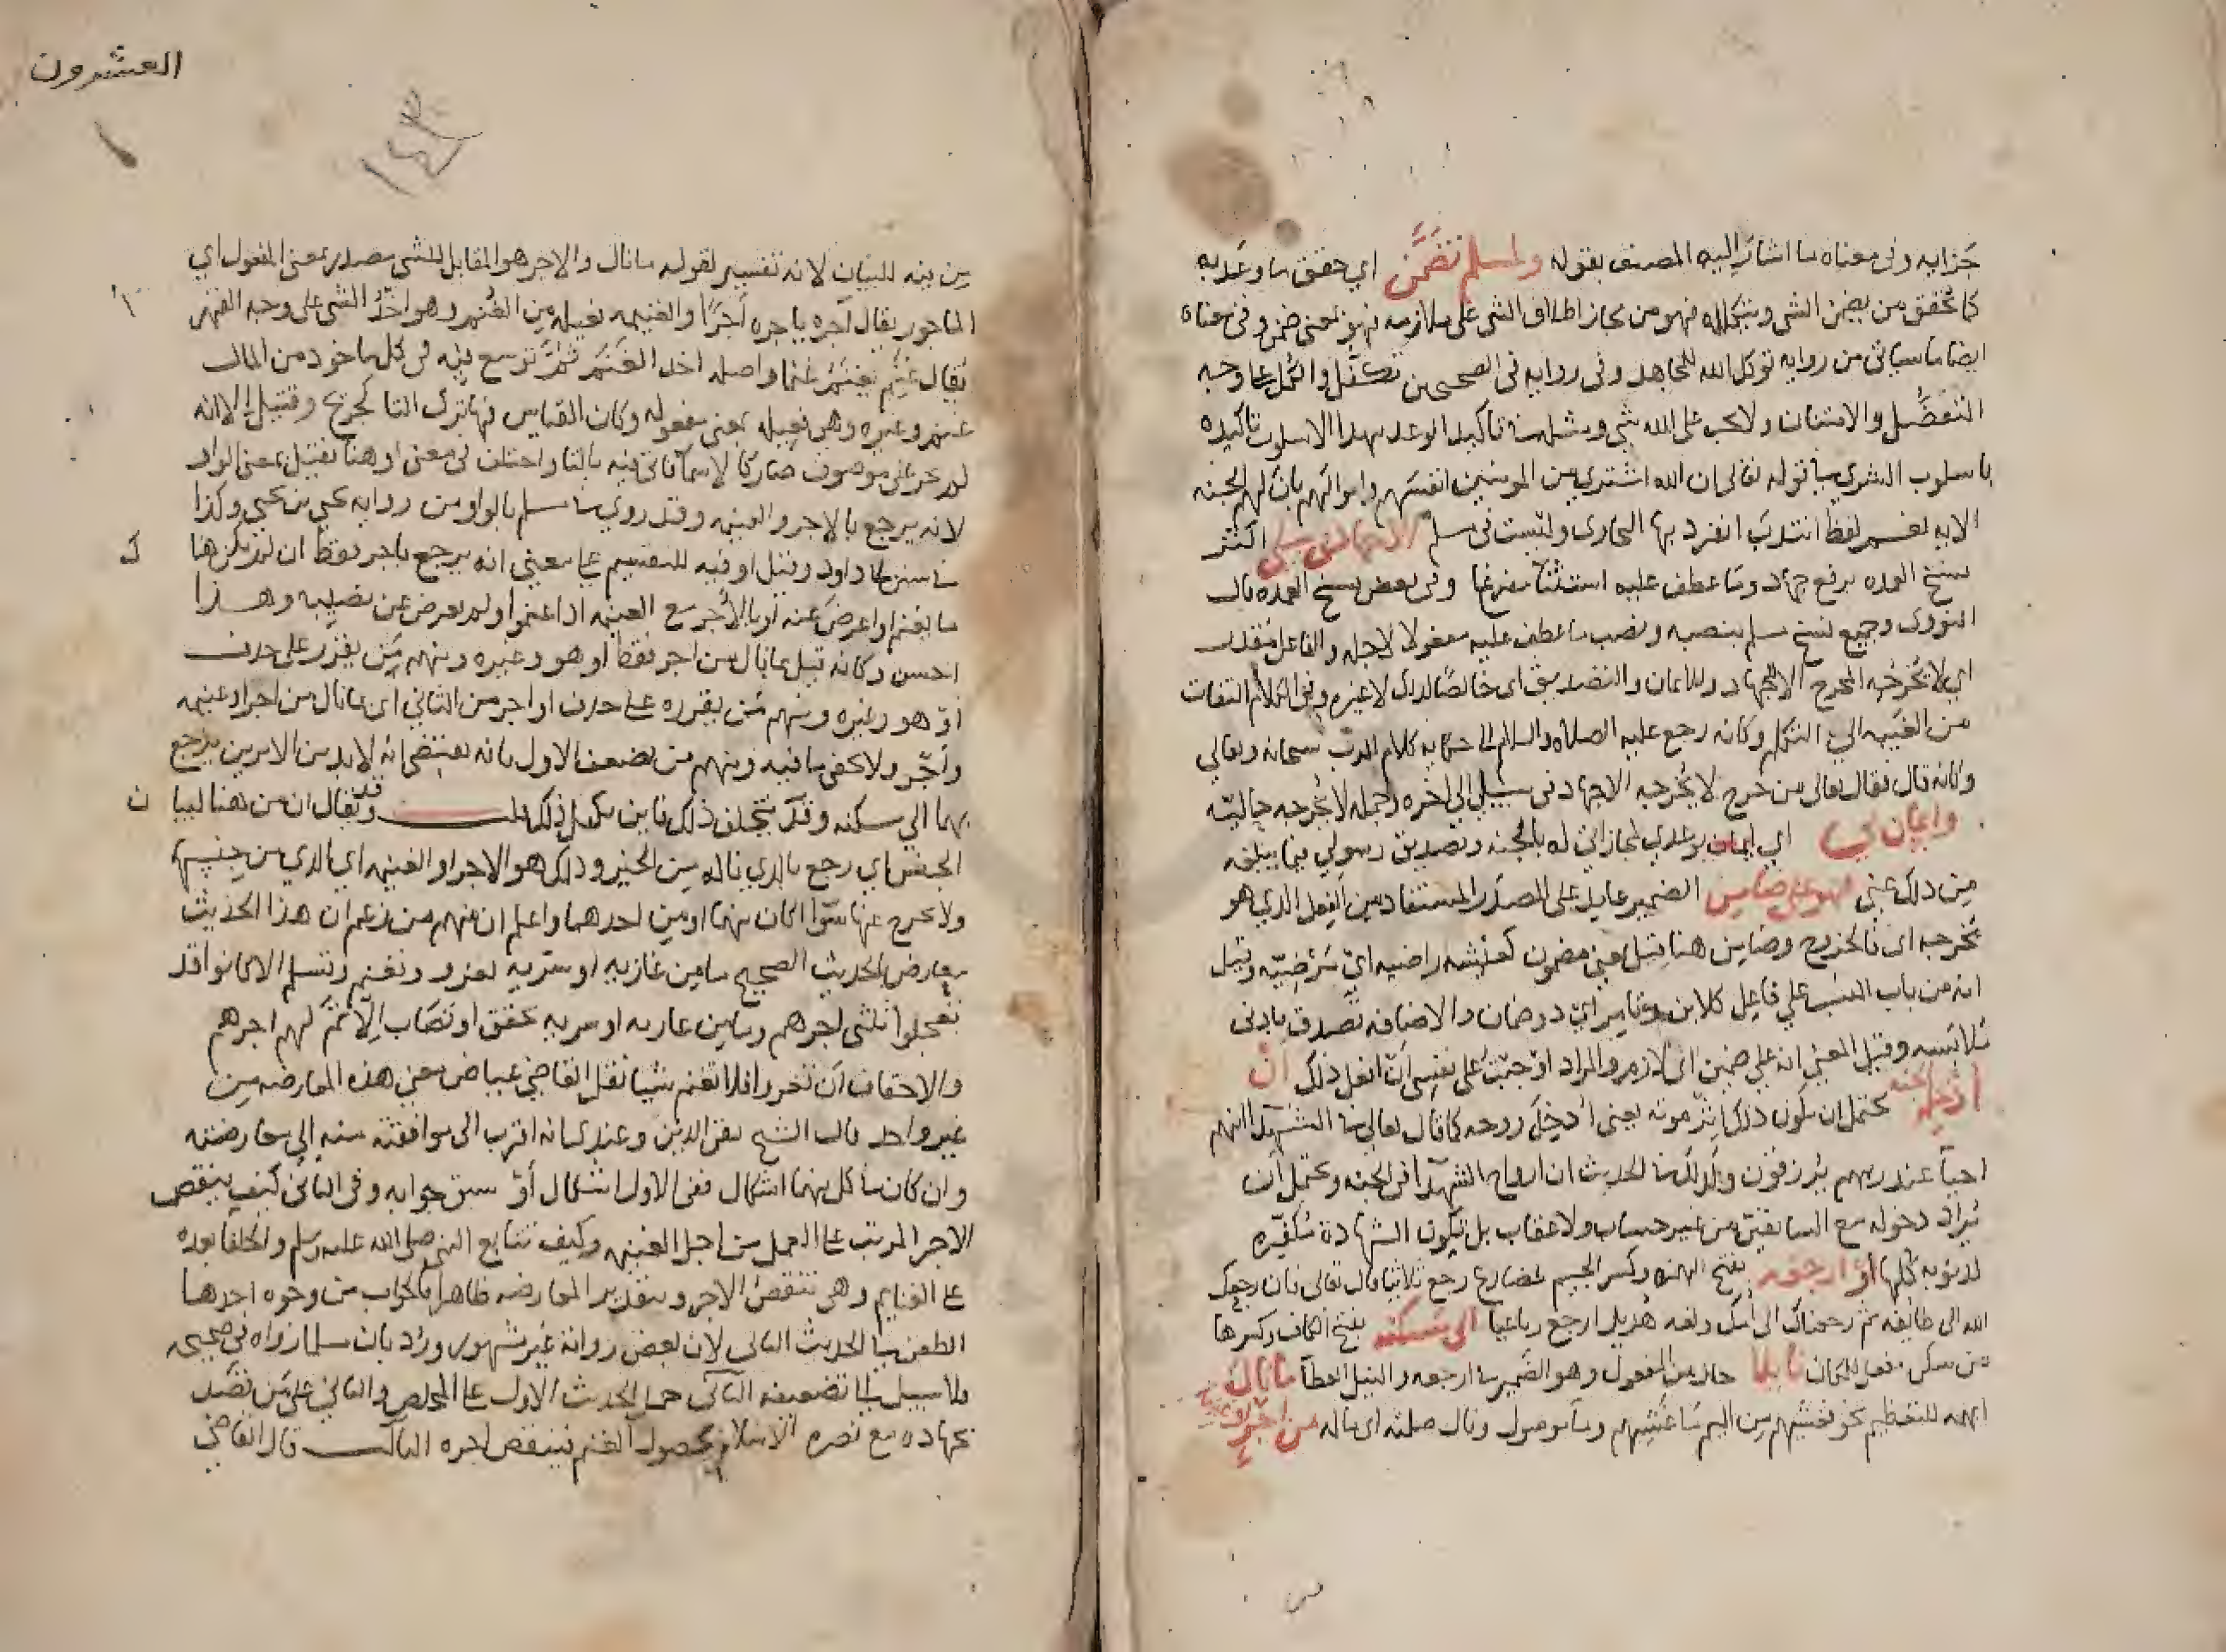 جزايه وفي معناه ما اشار اليه المصنف بقوله ولمسلم تضمن اي حقق ما وعد به
كما تحقق من يضمن الشي ويتكفله فهو من مجاز اطلاق الشي على ملازمه فهو بمعنى ضمن وفي معناه
ايضا ما سياتي من روايه توكل الله للمجاهد وفي روايه في الصحيحين تكفل والكل على وجه
التفضل والامتنان ولا يجب على الله شي تاكيد الوعد بهذا الاسلوب تاكيده
باسلوب الشري في قوله تعالى ان الله اشتري من المومنين انفسهم واموالهم بان لهم الجنه
الايه لفظ انتدب انفرد بها البخاري وليست في مسلم اكثر
نسخ العمده برفع جهاد وما عطف عليه استثنآ مفرغا وفي بعض نسخ العمده قال
النووي وجميع نسخ مسلم بنصبه ونصب ما عطف عليه مفعولا لاجله والفاعل مقدر
اي لا يخرجه المخرج الا الجهاد وللايمان والتصديق اي خالصا لذلك لا غيره وفي الكلام التفات
من الغيبه الى التكلم وكانه رجع عليه الصلاه والسلام الى حكايه كلام الرب سبحانه وتعالى
وكانه قال فقال تعالى من خرج لا يخرجه الا جهاد في سبيلي الى اخره وجمله لا يخرجه حاليه
وايمان بي اي ايمان بوعدي لمجازاتي له بالجنه وتصديق رسولي فيما يبلغه
من ذلك عني فهو علي ضامن الضمير عايد على المصدر المستفاد من الفعل الذي هو
يخرجه اي فالخروج وضامن هنا قيل بمعنى مضمون كعيشه راضيه اي مرضيه وقيل
انه من باب النسب على فاعل كلابن وتامر اي ذو ضمان والاضافه تصدق بادنى
ملابسه وقيل المعنى انه علي ضمين اي لازم والمراد اوجبت على نفسي ان افعل ذلك ان
ادخله الجنه يحتمل ان يكون ذلك اثر موته يعني ادخل روحه كما قال تعالى في الشهدآ انهم
احيآ عند ربهم يرزقون وكذلك في الحديث ان ارواح الشهدآ في الجنه ويحتمل ان
يراد دخوله مع السابقين من غير حساب ولا عقاب بل تكون الشهادة مكفره
لذنوبه كلها او ارجعه بفتح الهمزه وكسر الجيم مضارع رجع ثلاثيا قال تعالى فان رجعك
الله الى طايفه ثم رجعناك الى امك ولغه هذيل ارجع رباعيا الى مسكنه بفتح الكاف وكسرها
من سكن مفعل للمكان نايلا حال من المفعول وهو الضمير في ارجعه والنيل العطآ ما نال
ابهمه للتعظيم نحو فغشيهم من اليم ما غشيهم وما موصول ونال صلته اي ناله من اجر او غنيمة
العشرون
١٤٣
من فيه للبيان لانه تفسير لقوله ما نال والاجر هو المقابل للشي مصدر بمعنى المفعول اي
الماجور يقال آجره ياجره اجرا والغنيمه فعيله من الغنم وهو اخذ الشي على وجه القهر
يقال غنم يغنم غنما واصله اخذ الغنم ثم توسع فيه في كل ماخوذ من المال
غنم وغيره وهي فعيله بمعنى مفعوله وكان القياس فيها ترك التا كجريح وقتيل الا انه
لم يجر على موصوف صار كالاسما فاتي فيه بالتا واختلف في معنى او هنا فقيل بمعنى الواو
لانه يرجع بالاجر والغنيمه وقد روي في مسلم بالواو من روايه يحيى بن يحيى وكذا
في سنن ابي داود وقيل او فيه للتقسيم على معنى انه يرجع باجر فقط ان لم يكن هنا ك
ما يغنم او اعرض عنه او بالاجر مع الغنيمه اذا غنموا ولم يعرض عن نصيبه وهذا
احسن وكانه قيل بما نال من اجر فقط او هو وغيره ومنهم من يقدر على حذف
او هو وغيره ومنهم من يقدره على حذف او اجر من الثاني اي بما نال من اجر او غنيمه
واجر ولا يخفى ما فيه ومنهم من يضعف الاول بانه يقتضي انه لابد من الامرين يرجع
بهما الى سكنه وقد يتخلف ذلك فاين تكفل ذلك قلت وقد يقال ان من هنا لبيا ن
الجنس اي رجع بالذي ناله من الخير وذلك هو الاجر او الغنيمه اي الذي من جنسها
ولا يخرج عنها سوا كان منهما او من احدهما واعلم ان منهم من زعم ان هذا الحديث
يعارض الحديث الصحيح ما من غازيه او سريه تغزو وتغنم وتسلم الا كانوا قد
تعجلوا ثلثي اجرهم وما من غازيه او سريه تخفق او تصاب الا تم لهم اجرهم
والاخفاق ان تغزو فلا تغنم شيا نقل القاضي عياض معنى هذه المعارضه عن
غير واحد قال الشيخ تقي الدين وعندي انه اقرب الى موافقته منه الى معارضته
وان كان في كل منهما اشكال ففي الاول اشكال او سبق جوابه وفي الثاني كيف ينقص
الاجر المرتب على العمل من اجل الغنيمه وكيف تتابع النبي صلى الله عليه وسلم والخلفا بعده
على الغنايم وهي تنقص الاجر وبتقدير المعارضه ظاهرا فالجواب من وجوه احدها
الطعن في الحديث الثاني لان بعض رواته غير مشهور ورد بان مسلما رواه في صحيحه
ولا سبيل الى تضعيفه الثاني حمل الحديث الاول على المخلص والثاني على من قصد
بجهاده مع نصرة الاسلام حصول الغنم فينقص اجره الثالث قال القاضي